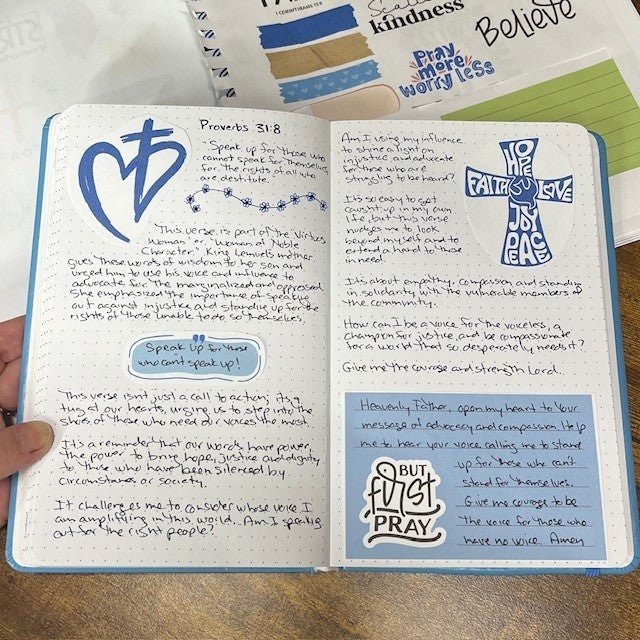 1 CORINTHIANS 13:8
kindness
Believe
pray
more
worry less
Proverbs 31:8
"Speak up for those who
cannot speak for themselves
for the rights of all who
are destitute.
This verse is part of the "Virtuous
Woman" or "Woman of Noble
Character." King Lemuel's mother
gives these words of wisdom to her son and
urged him to use his voice and influence to
advocate for the marginalized and oppressed.
She emphasized the importance of speaking
out against injustice and standing up for the
rights of those unable to do so themselves.
Speak up for those
who can't speak up!
This verse isn't just a call to action; it's a
tug at our hearts, urging us to step into the
shoes of those who need our voices the most.
It's a reminder that our words have power,
the power to bring hope, justice and dignity
to those who have been silenced by
circumstances or society.
It challenges me to consider whose voice I
am amplifying in this world. Am I speaking
out for the right people?
Am I using my influence
to shine a light on
injustice and advocate
for those who are
struggling to be heard?
It's so easy to get
caught up in my own
life, but this verse
nudges me to look
beyond myself and to
extend a hand to those
in need.
It's about empathy, compassion and standing
in solidarity with the vulnerable members of
the community.
How can I be a voice for the voiceless, a
champion for justice, and be compassionate
for a world that so desperately needs it?
Give me the courage and strength Lord.
HOPE
FAITH LOVE
JOY
PEACE
Heavenly Father, open my heart to Your
message of advocacy and compassion. Help
me to hear your voice calling me to stand
up for those who can't
stand for themselves.
Give me courage to be
the voice for those who
have no voice. Amen
BUT
first
PRAY